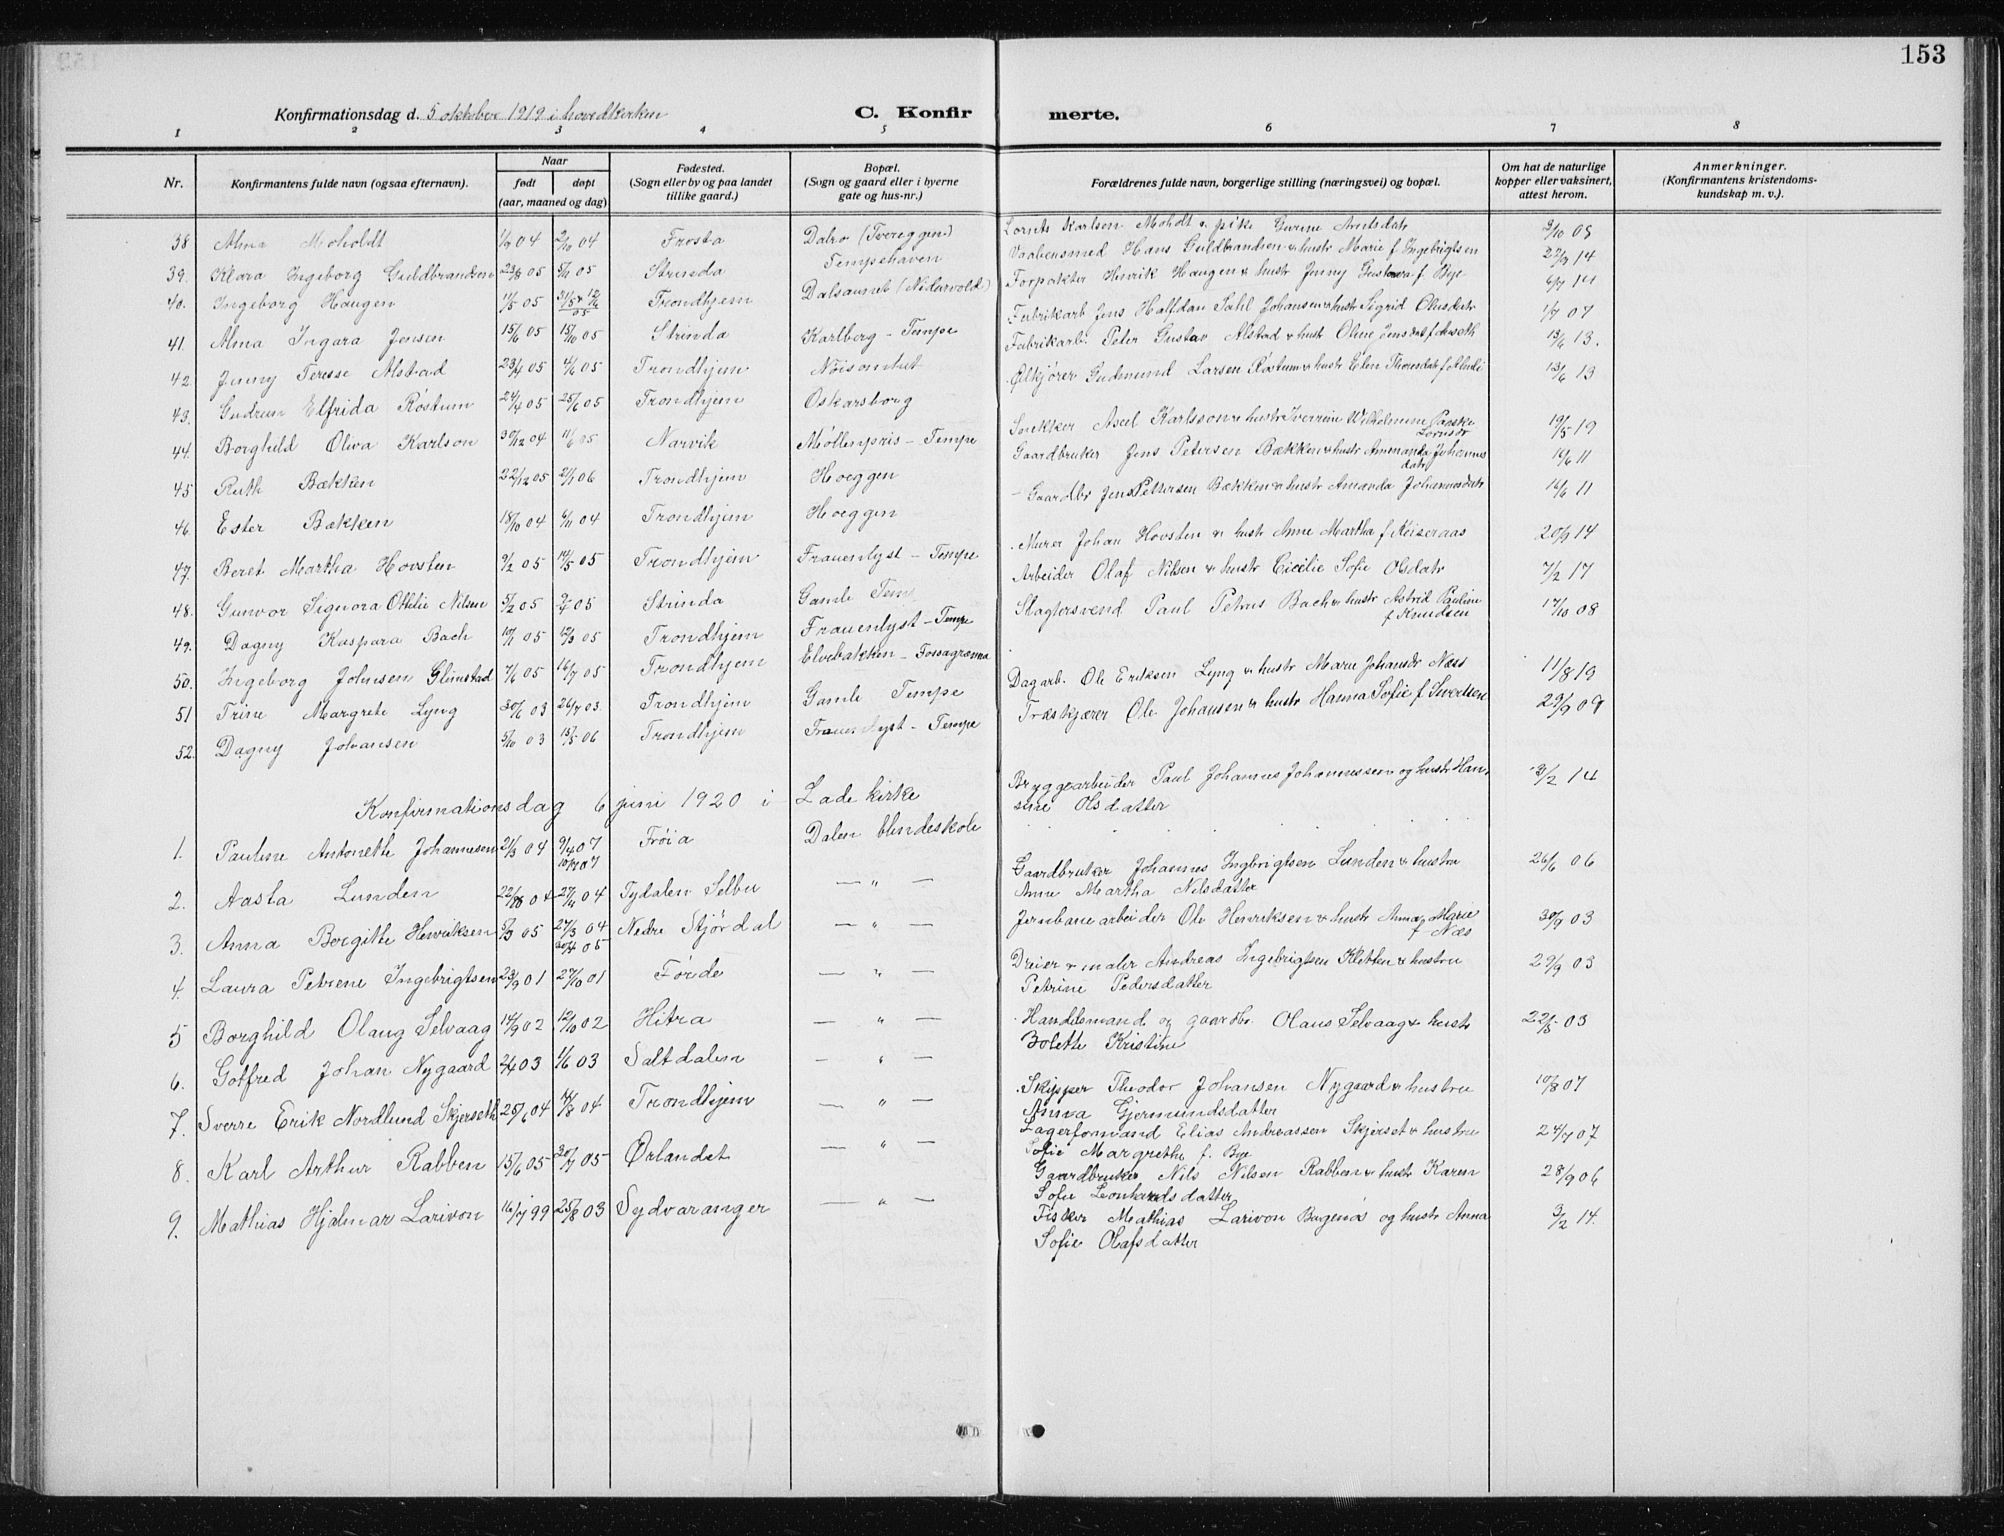 153
Konfirmationsdag d. 5 oktober 1919 i hovedkirken C. Konfir merte.
1 2 3 4 5 6 7 8
Nr. Konfirmantens fulde navn (ogsaa efternavn). Naar født døpt (aar, maaned og dag) Fødested. (Sogn eller by og paa landet tillike gaard.) Bopæl. (Sogn og gaard eller i byerne gate og hus-nr.) Forældrenes fulde navn, borgerlige stilling (næringsvei) og bopæl. Om hat de naturlige kopper eller vaksinert, attest herom. Anmerkninger. (Konfirmantens kristendomskundskap m. v.).
38 Alma Moholdt 1/9 04 2/10 04 Frosta Dalro (Tvereggen) Lornts Karlsen Moholdt & pike Gurine Arntsdatr 3/10 05
39. Klara Ingeborg Guldbrandsen 23/8 05 5/11 05 Strinda Tempehaven Vaabensmed Hans Guldbrandsen & hustr Marie f. Ingebrigtsen 22/9 14
40. Ingeborg Haugen 11/5 05 Trondhjem Dalsaunet (Nidarvold) Forpakter Henrik Haugen & hustr Jenny Gustava f. Bye 6/7 14
41. Alma Ingara Jensen 15/6 05 15/10 05 Strinda Karlberg - Tempe Fabrikarb Jens Halfdan Dahl Johansen & hustr Sigrid Olausdatr 1/7 07
42. Jenny Teresse Alstad 23/4 05 4/6 05 Trondhjem Nøisomhet Fabrikarb. Peter Gustav Alstad & hustr Oline Jensdat f. Auseth 13/6 13.
43. Gudrun Elfrida Røstum 24/4 05 25/6 05 Trondhjem Oskarsborg Ølkjører Gudmund Larsen Røstum & hustr Elen Thomsdat 13/6 13
44. Borghild Oliva Karlson 30/12 04 11/6 05 Narvik Møllenpris - Tempe Snekker Axel Karlsson & hustr Iverine Wilhelmine 19/5 19
45 Ruth Bækken 22/12 05 2/1 06 Trondhjem Hoeggen Gaardbruker Jens Petersen Bækken & hustr Ammanda Johannesdatr 16/6 11
46 Ester Bækken 18/10 04 6/11 04 Trondhjem Hoeggen Gaardbr Jens Pettersen Bækken & hustr Amanda Johannesdatr 16/6 11
47. Beret Martha Hovsten 9/2 05 14/5 05 Trondhjem Frauenlyst - Tempe Murer Johan Hovsten & hustr Anne Martha f. Keiseraas 20/9 14
48. Gunvor Signora Othelie Nilsen 5/2 05 05 Strinda Gamle Tem Arbeider Olaf Nilsen & hustr Cicilie Sofie Olsdatr 7/2 17
49. Dagny Kaspara Bach 10/1 05 12/3 05 Trondhjem Frauenlyst - Tempe Slagtersvend Paul Petrus Bach & hustr Astrid Pauline f Knudsen 17/10 08
50. Ingeborg Johnsen Glimstad 7/6 05 16/7 05 Trondhjem Elvebakken - Fossagrænna
51 Trine Margrete Lyng 30/6 03 26/7 03. Trondhjem Gamle Tempe Dagarb. Ole Eriksen Lyng & hustr Marie Johansdr Næss 11/8 19
52. Dagny Johansen 5/10 03 13/5 06 Trondhjem Frauenlyst - Tempe Træskjærer Ole Johansen & hustr Hanna Sofie f. Sivertsen 29/9 09
Konfirmationsdag 6 juni 1920 i Lade kirke
1. Pauline Antonette Johannesen 2/3 04 9/4 07 10/7 07 Frøia Dalen blindeskole Bryggearbeider Paul Johannes Johannessen og hustr Hansine Olsdatter 3/2 14
2. Aasta Lunden 22/8 04 27/11 04 Tydalen Selbu — „ — Gaardbruker Johannes Ingbrigtsen Lunden & hustru Anne Martha Nilsdatter 26/6 06
3. Anna Bergitte Henriksen 5/3 05 27/3 04 30/4 05 Nedre Stjørdal — „ — Jernbanearbeider Ole Henriksen & hustr Anna Marie f Næs 30/9 03
4. Laura Petrene Ingebrigtsen 23/9 01 27/10 01 Førde — „ — Dreier & maler Andreas Ingebrigtsen Kletten & hustru Petrine Pedersdatter 29/9 03
5 Borghild Olaug Selvaag 14/9 02 12/10 02 Hitra — „ — Handelsmand og gaardbr. Olaus Selvaag & hustr Bolette Kristine 22/5 03
6. Gotfred Johan Nygaard 2/4 03 1/6 03 Saltdalen — „ — Skipper Theodor Johansen Nygaard & hustru Anna Gjermundsdatter 10/8 07
7. Sverre Erik Nordlund Skjerseth 25/6 04 14/8 04 Trondhjem — „ — Lagerformand Elias Andreassen Skjerset & hustru Sofie Margrethe f. Bye 24/7 07
8. Karl Arthur Rabben 15/6 05 30/7 05 Ørlandet — „ — Gaardbruker Nils Nilsen Rabben & hustr Karen Sofie Leonhardsdatter 28/9 06
9. Mathias Hjalmar Larivon 16/7 99 25/8 03 Sydvaranger — „ — Fisker Mathias Larivon Bugenes og hustr Anna Sofie Olafsdatter 3/2 14.